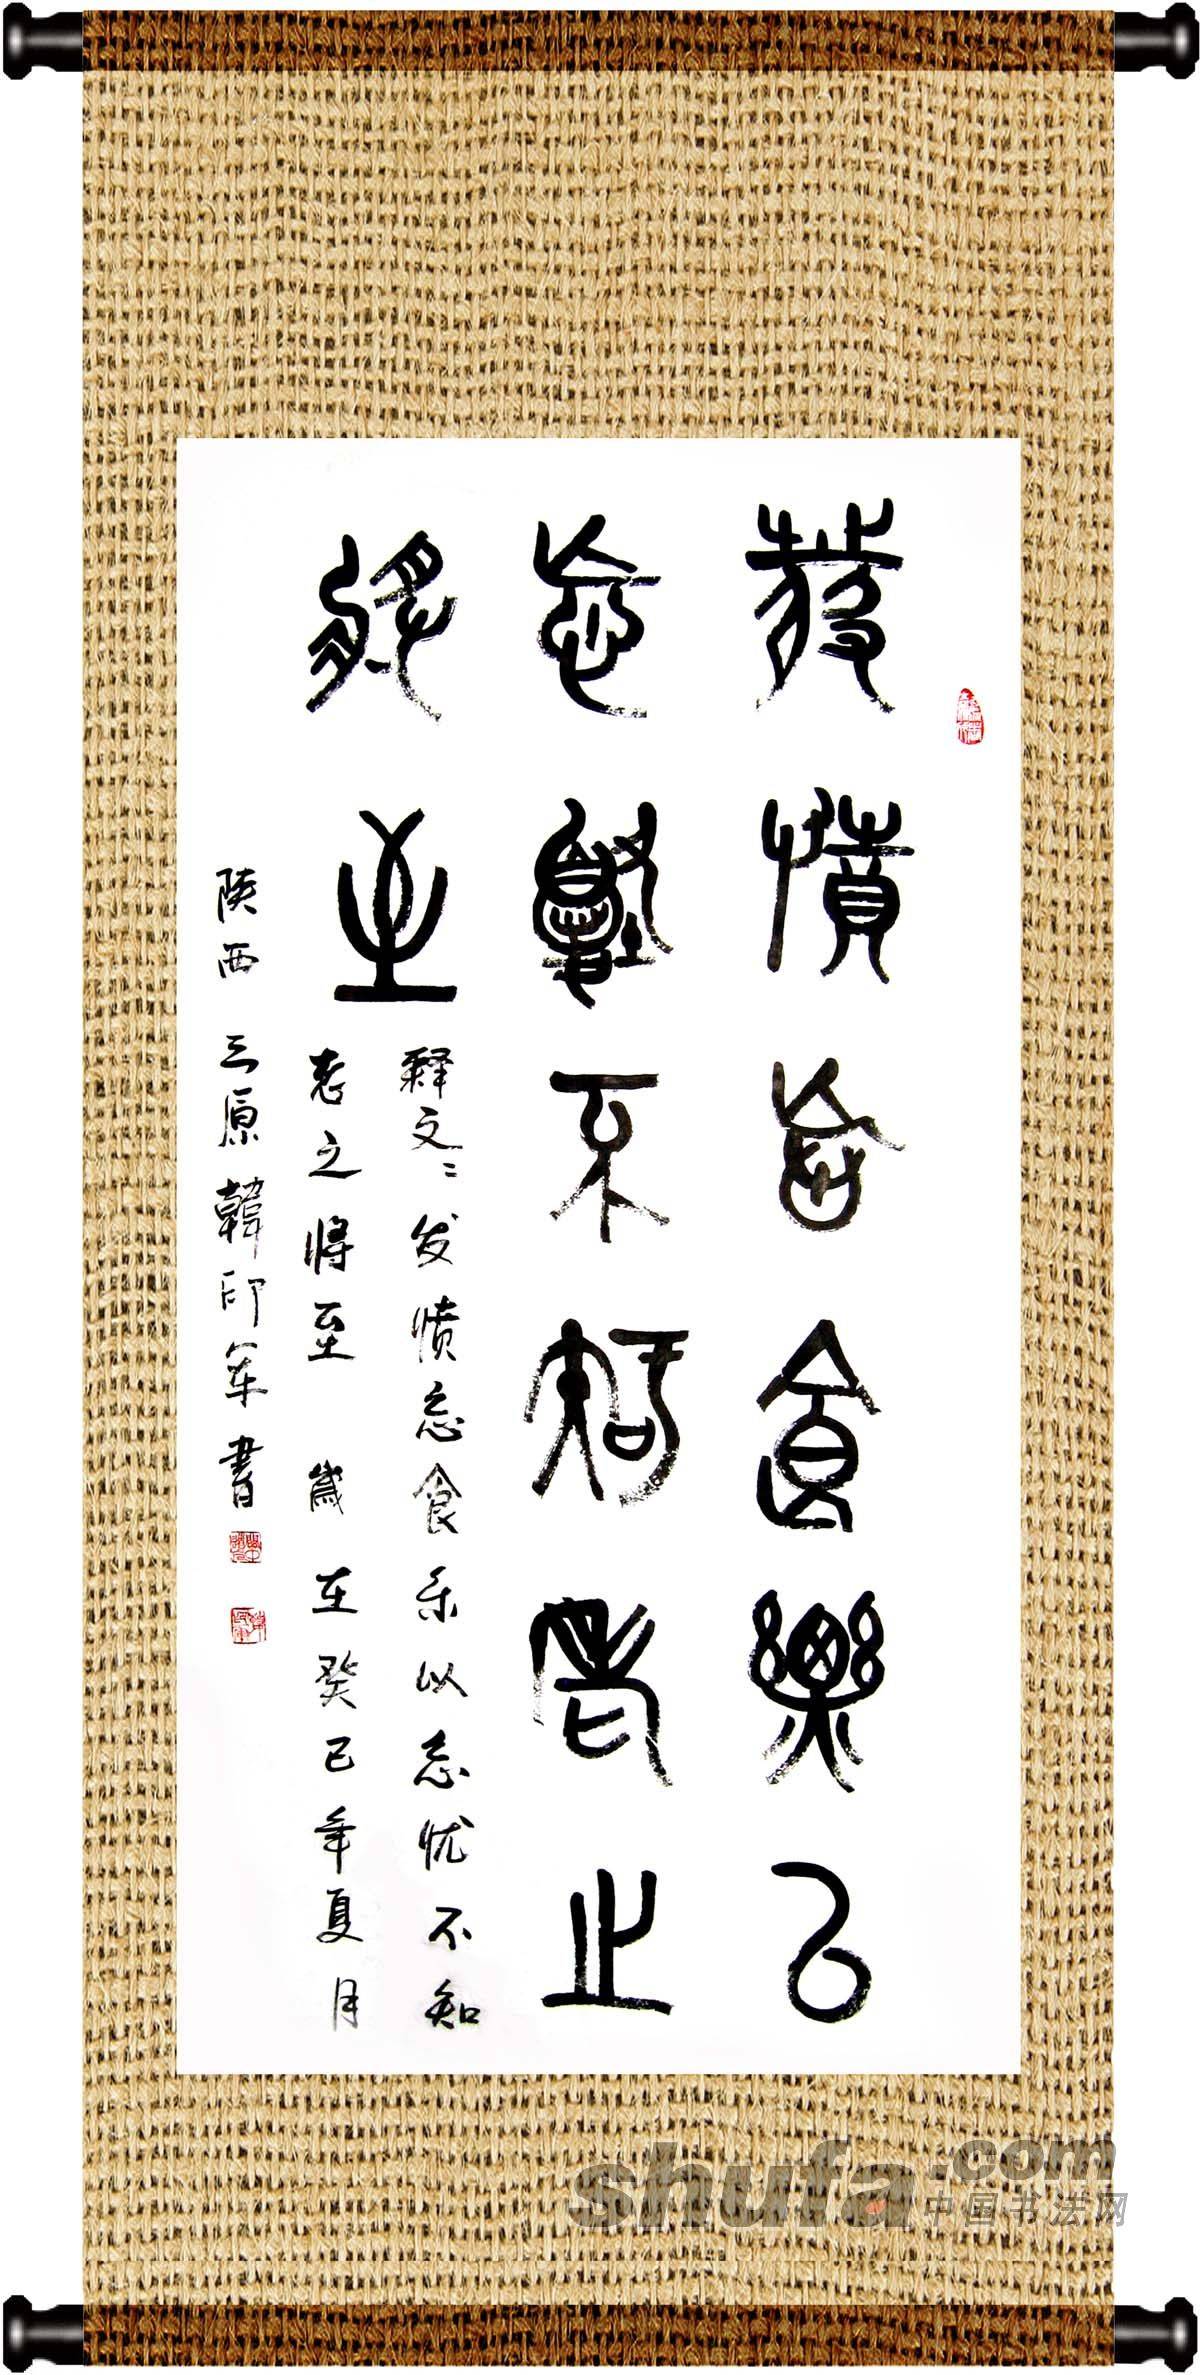 發憤忘食樂以
忘憂不知老之
將至
释文：发愤忘食乐以忘忧不知
老之将至 歲在癸巳年夏月
陕西三原韓印军書
shufa.com
中国书法网